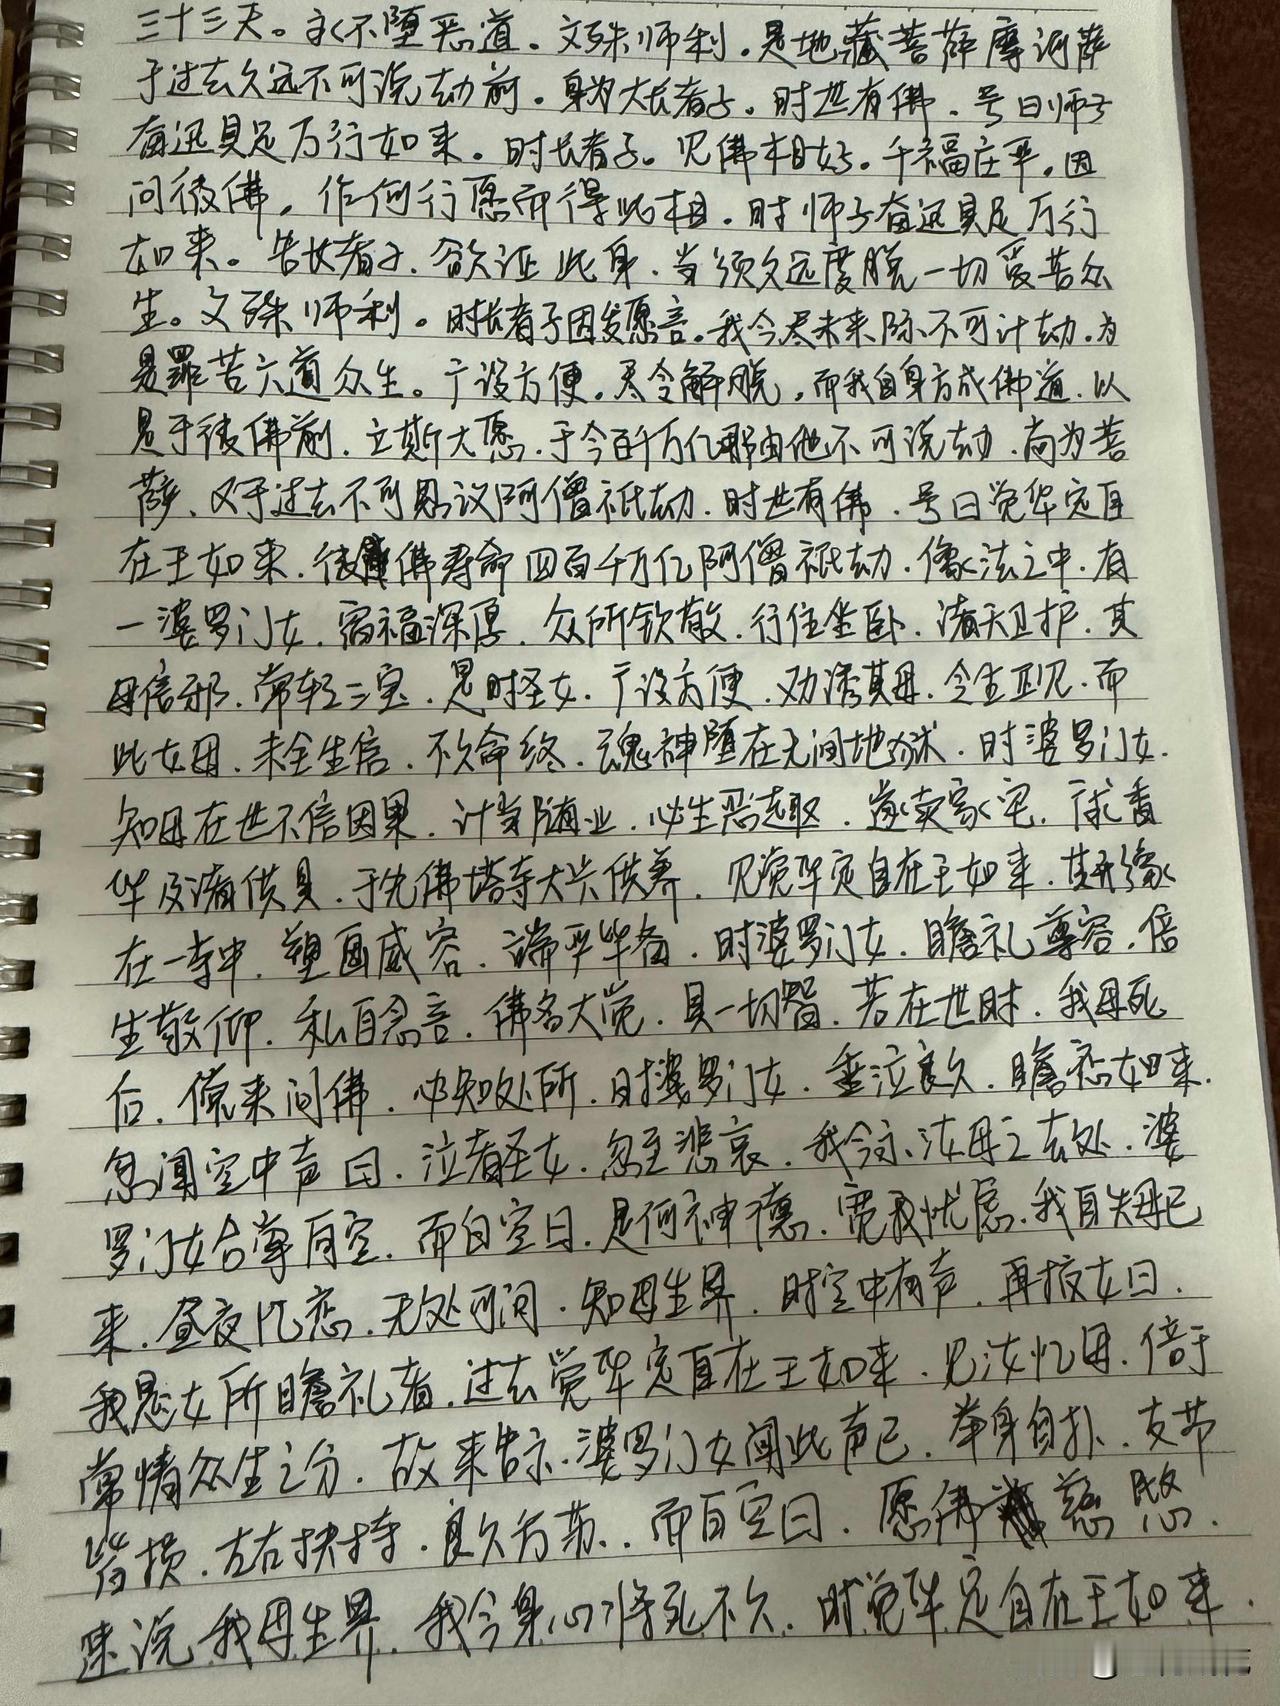 三十三天。永不堕恶道。文殊师利。是地藏菩萨摩诃萨
于过去久远不可说劫前。身为大长者子。时世有佛。号曰师子
奋迅具足万行如来。时长者子。见佛相好。千福庄严。因
问彼佛。作何行愿而得此相。时师子奋迅具足万行
如来。告长者子。欲证此身。当须久远度脱一切受苦众
生。文殊师利。时长者子因发愿言。我今尽未来际不可计劫。为
是罪苦六道众生。广设方便。尽令解脱。而我自身方成佛道。以
是于彼佛前。立斯大愿。于今百千万亿那由他不可说劫。尚为菩
萨。又于过去不可思议阿僧祇劫。时世有佛。号曰觉华定自
在王如来。彼佛寿命四百千万亿阿僧祇劫。像法之中。有
一婆罗门女。宿福深厚。众所钦敬。行住坐卧。诸天卫护。其
母信邪。常轻三宝。是时圣女。广设方便。劝诱其母。令生正见。而
此女母。未全生信。不久命终。魂神堕在无间地狱。时婆罗门女。
知母在世不信因果。计当随业。必生恶趣。遂卖家宅。广求香
华及诸供具。于先佛塔寺大兴供养。见觉华定自在王如来。其形像
在一寺中。塑画威容。端严毕备。时婆罗门女。瞻礼尊容。倍
生敬仰。私自念言。佛名大觉。具一切智。若在世时。我母死
后。傥来问佛。必知处所。时婆罗门女。垂泣良久。瞻恋如来。
忽闻空中声曰。泣者圣女。勿至悲哀。我今示汝母之去处。婆
罗门女合掌向空。而白空曰。是何神德。宽我忧虑。我自失母已
来。昼夜忆恋。无处可问。知母生界。时空中有声。再报女曰。
我是女所瞻礼者。过去觉华定自在王如来。见汝忆母。倍于
常情众生之分。故来告示。婆罗门女闻此声已。举身自扑。支节
皆损。左右扶持。良久方苏。而白空曰。愿佛慈愍。
速说我母生界。我今身心将死不久。时觉华定自在王如来。